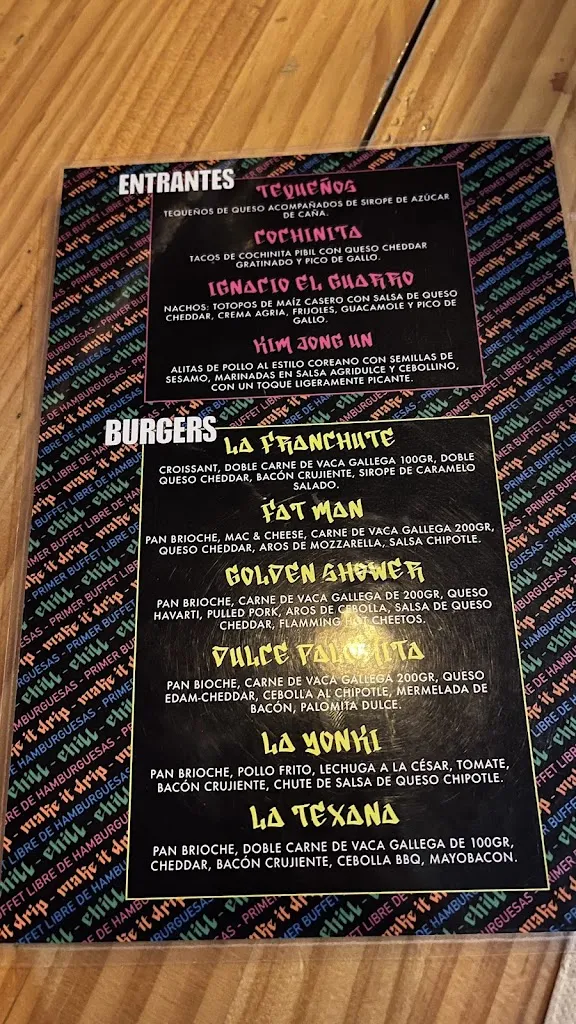 ENTRANTES
TEQUEÑOS
TEQUEÑOS DE QUESO ACOMPAÑADOS DE SIROPE DE AZÚCAR
DE CAÑA.
COCHINITA
TACOS DE COCHINITA PIBIL CON QUESO CHEDDAR
GRATINADO Y PICO DE GALLO.
IGNACIO EL GUARRO
NACHOS: TOTOPOS DE MAÍZ CASERO CON SALSA DE QUESO
CHEDDAR, CREMA AGRIA, FRIJOLES, GUACAMOLE Y PICO DE
GALLO.
KIM JONG UN
ALITAS DE POLLO AL ESTILO COREANO CON SEMILLAS DE
SESAMO, MARINADAS EN SALSA AGRIDULCE Y CEBOLLINO,
CON UN TOQUE LIGERAMENTE PICANTE.
BURGERS
LA FRANCHUTE
CROISSANT, DOBLE CARNE DE VACA GALLEGA 100GR, DOBLE
QUESO CHEDDAR, BACÓN CRUJIENTE, SIROPE DE CARAMELO
SALADO.
FAT MAN
PAN BRIOCHE, MAC & CHEESE, CARNE DE VACA GALLEGA 200GR,
QUESO CHEDDAR, AROS DE MOZZARELLA, SALSA CHIPOTLE.
GOLDEN SHOWER
PAN BRIOCHE, CARNE DE VACA GALLEGA DE 200GR, QUESO
HAVARTI, PULLED PORK, AROS DE CEBOLLA, SALSA DE QUESO
CHEDDAR, FLAMMING HOT CHEETOS.
DULCE PALOMITA
PAN BIOCHE, CARNE DE VACA GALLEGA 200GR, QUESO
EDAM-CHEDDAR, CEBOLLA AL CHIPOTLE, MERMELADA DE
BACÓN, PALOMITA DULCE.
LA YONKI
PAN BRIOCHE, POLLO FRITO, LECHUGA A LA CÉSAR, TOMATE,
BACÓN CRUJIENTE, CHUTE DE SALSA DE QUESO CHIPOTLE.
LA TEXANA
PAN BRIOCHE, DOBLE CARNE DE VACA GALLEGA DE 100GR,
CHEDDAR, BACÓN CRUJIENTE, CEBOLLA BBQ, MAYOBACON.
PRIMER BUFFET LIBRE DE HAMBURGUESAS - chill - make it drip -